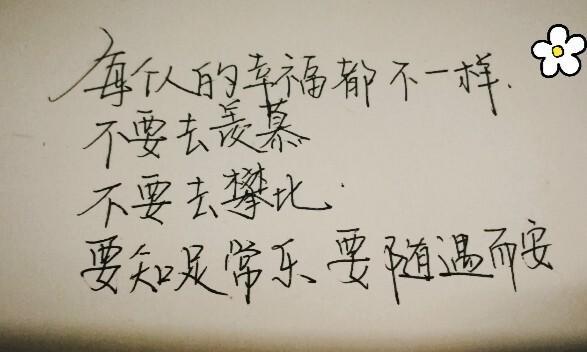 每个人的幸福都不一样.
不要去羡慕
不要去攀比.
要知足常乐 要随遇而安